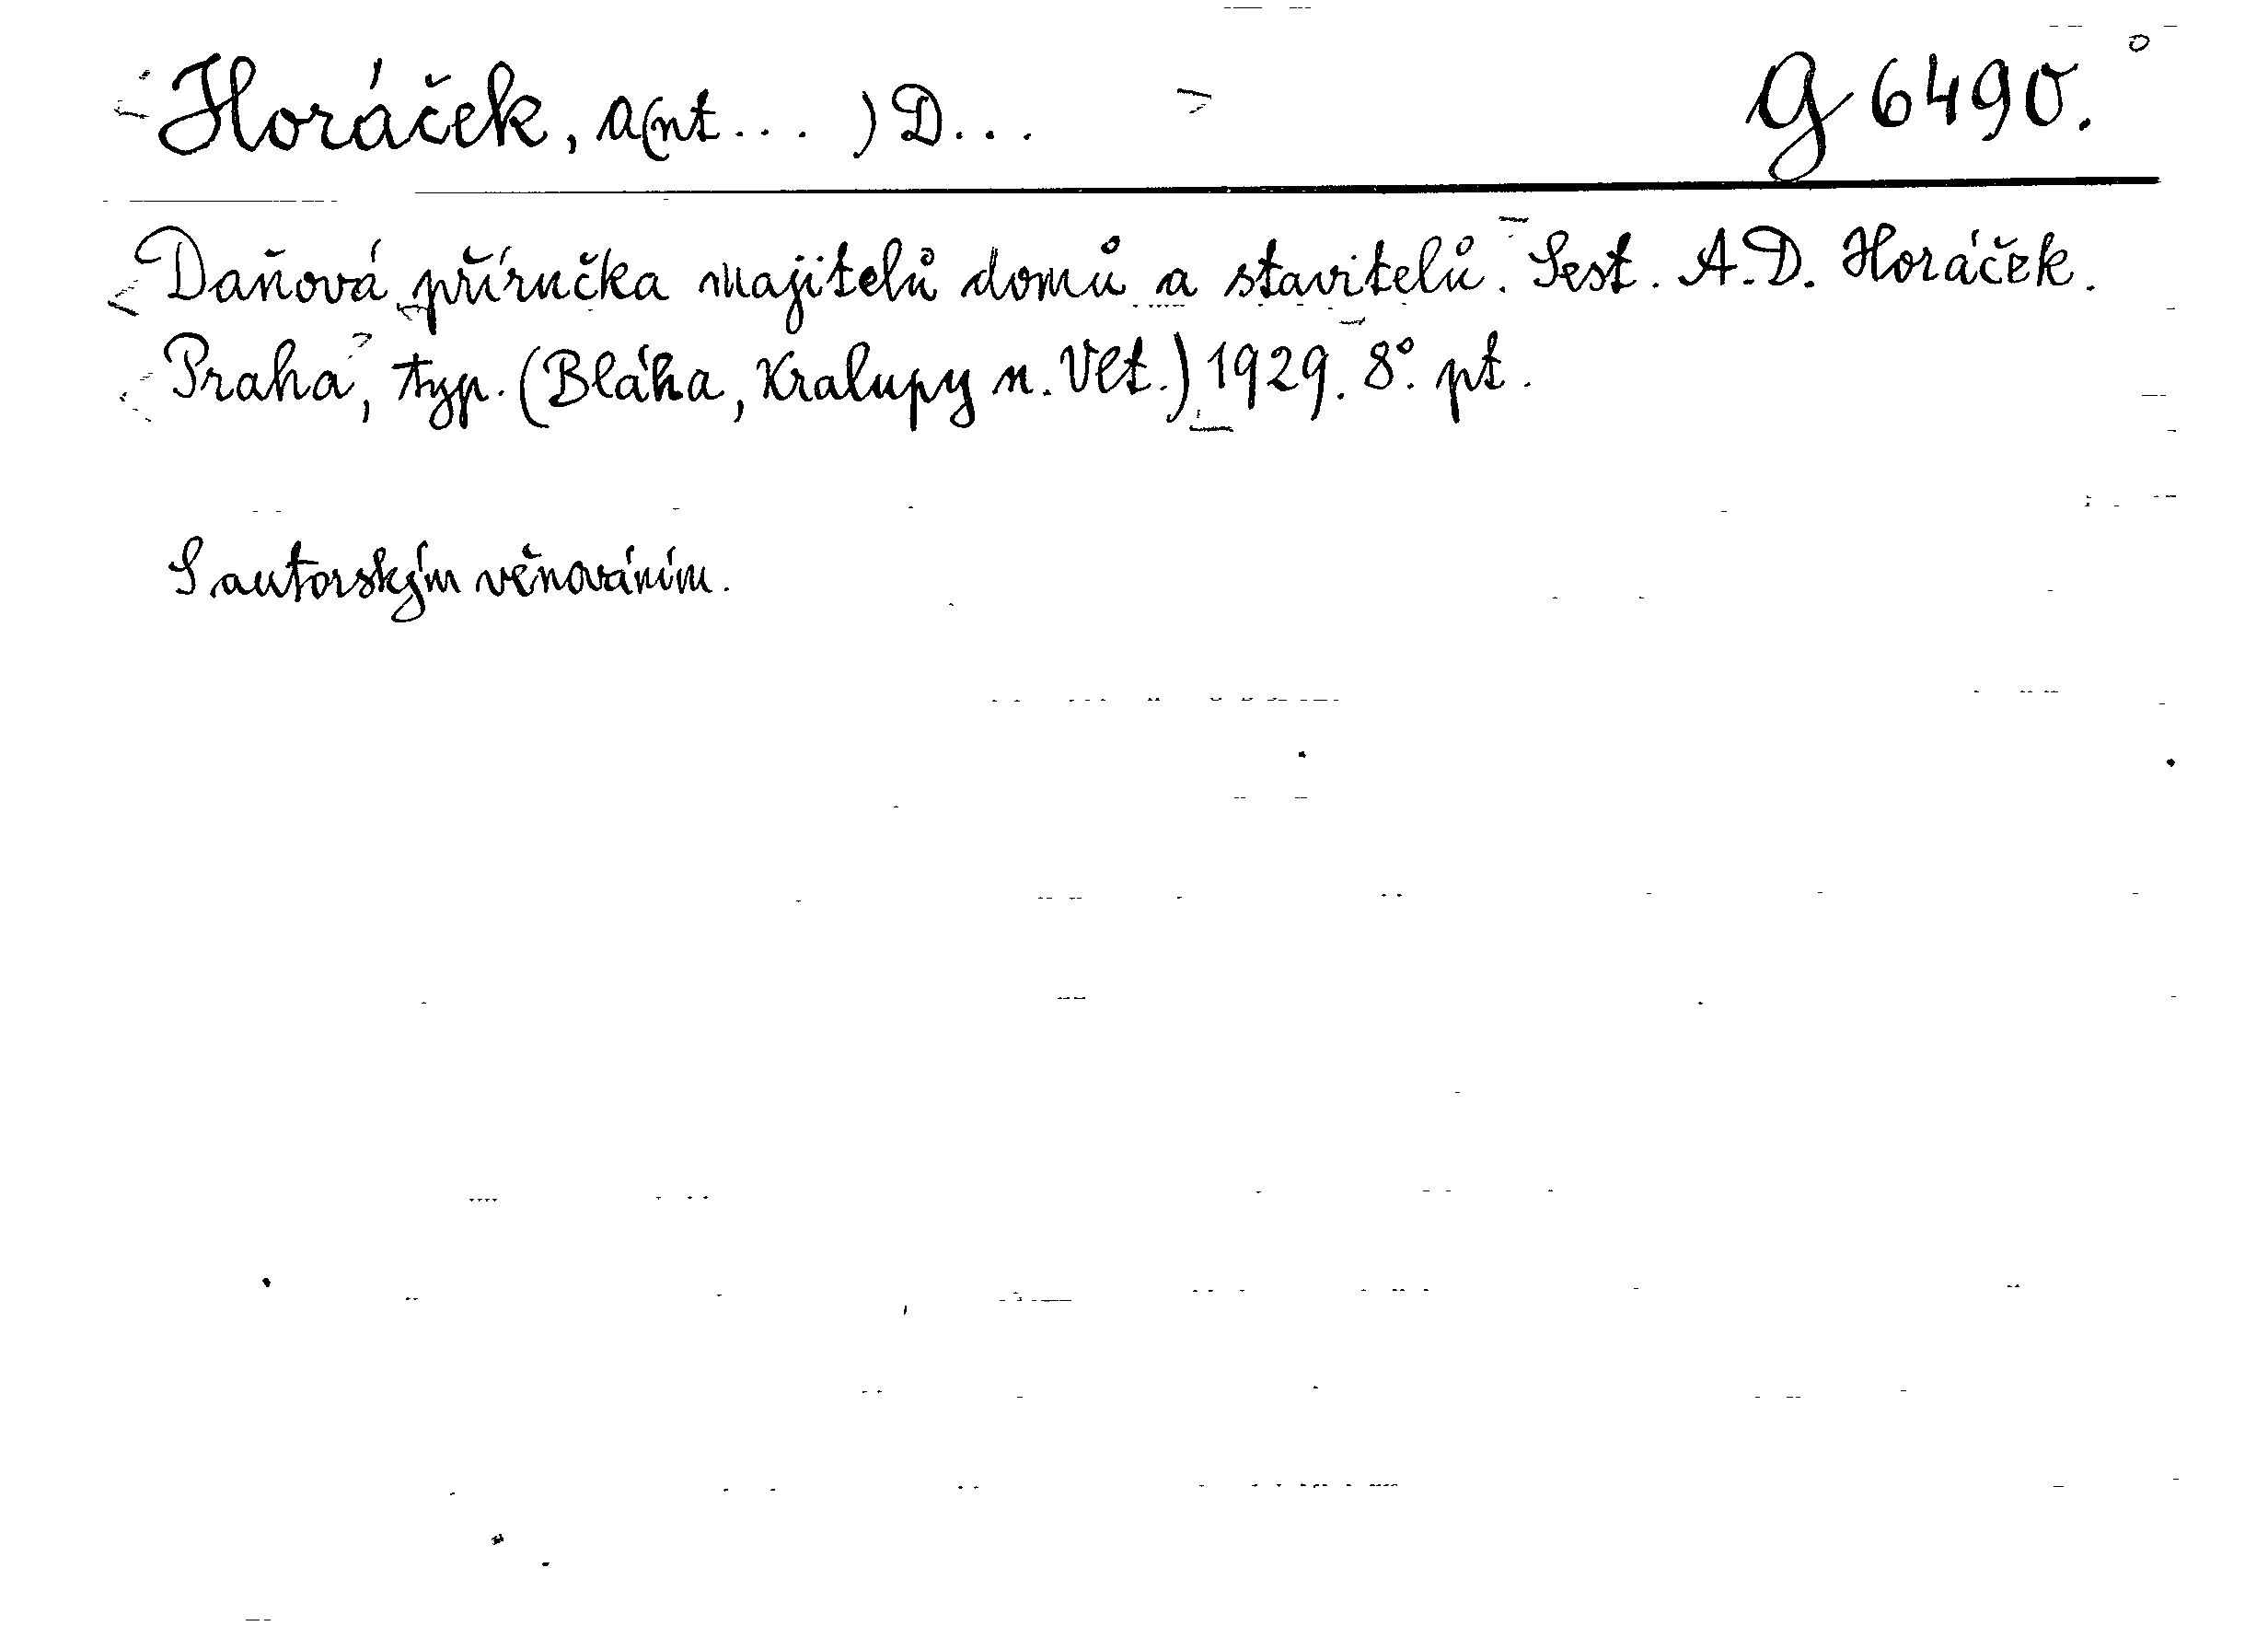 Horáček, A(nt... ) D... G 6490.
Daňová příručka majitelů domů a stavitelů. Sest. A.D. Horáček.
Praha, typ. (Bláha, Kralupy n. Vlt.) 1929. 8°. pt.
S autorským věnováním.